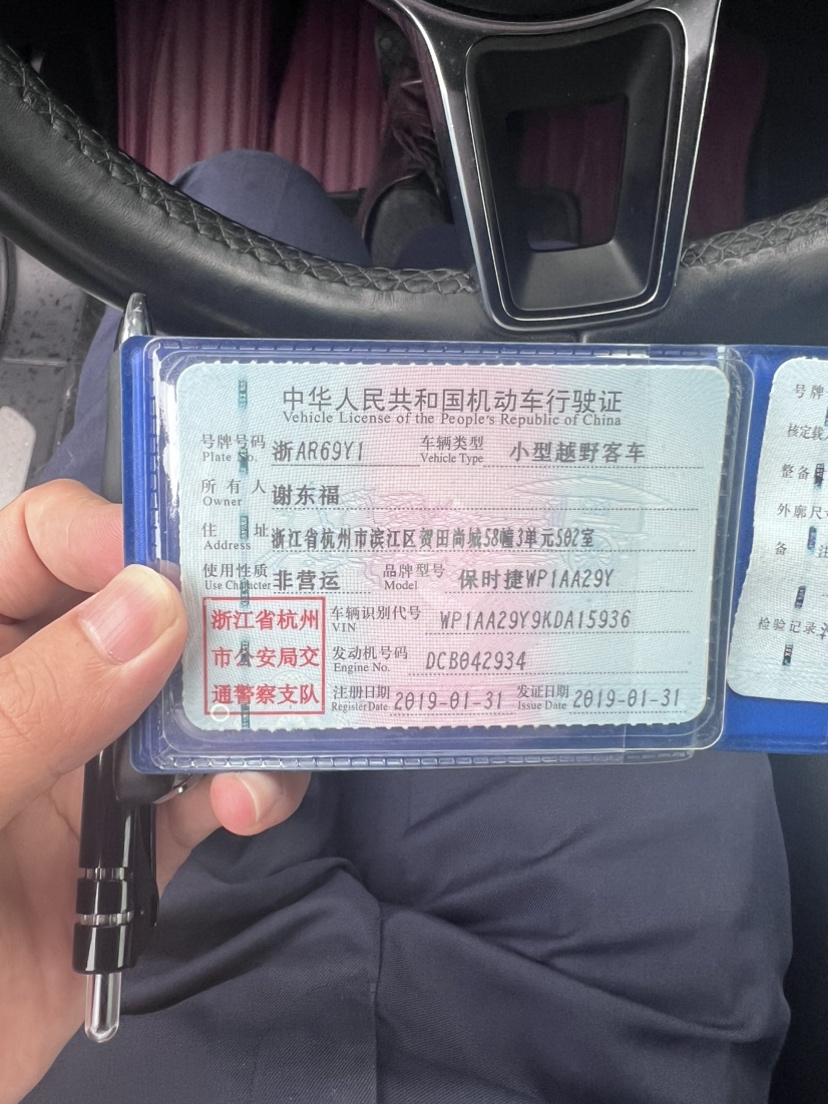 中华人民共和国机动车行驶证
Vehicle License of the People's Republic of China
号牌号码 浙AR69Y1 车辆类型 小型越野客车
Plate No. Vehicle Type
所有人 谢东福
Owner
住址 浙江省杭州市滨江区贺田尚城58幢3单元502室
Address
使用性质 非营运 品牌型号 保时捷WP1AA29Y
Use Character Model
浙江省杭州
市公安局交
通警察支队
车辆识别代号 WP1AA29Y9KDA15936
VIN
发动机号码 DCB042934
Engine No.
注册日期 2019-01-31 发证日期 2019-01-31
Register Date Issue Date
号牌
核定载
整备
外廓尺
备 注
检验记录